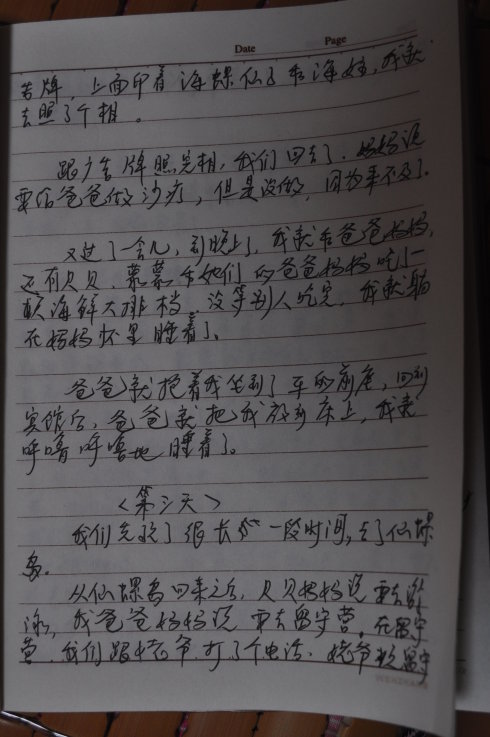 Date Page
告牌，上面印着海螺仙子和海娃，我就
去照了个相。
跟广告牌照完相，我们回去了。妈妈说
要给爸爸做沙疗，但是没做，因为来不及了。
又过了一会儿，到晚上了，我就和爸爸妈妈，
还有贝贝、蒙蒙和她们的爸爸妈妈吃了一
顿海鲜大排档，没等别人吃完，我就躺
在妈妈怀里睡着了。
爸爸就抱着我坐到了车的前座，回到
宾馆后，爸爸就把我放到床上，我就
呼噜呼噜地睡着了。
＜第三天＞
我们先玩了很长一段时间，去了仙螺
岛。
从仙螺岛回来之后，贝贝妈妈说要去游
泳，我爸爸妈妈说要去留守营。在留守
营，我们跟老爷打了个电话，姥爷